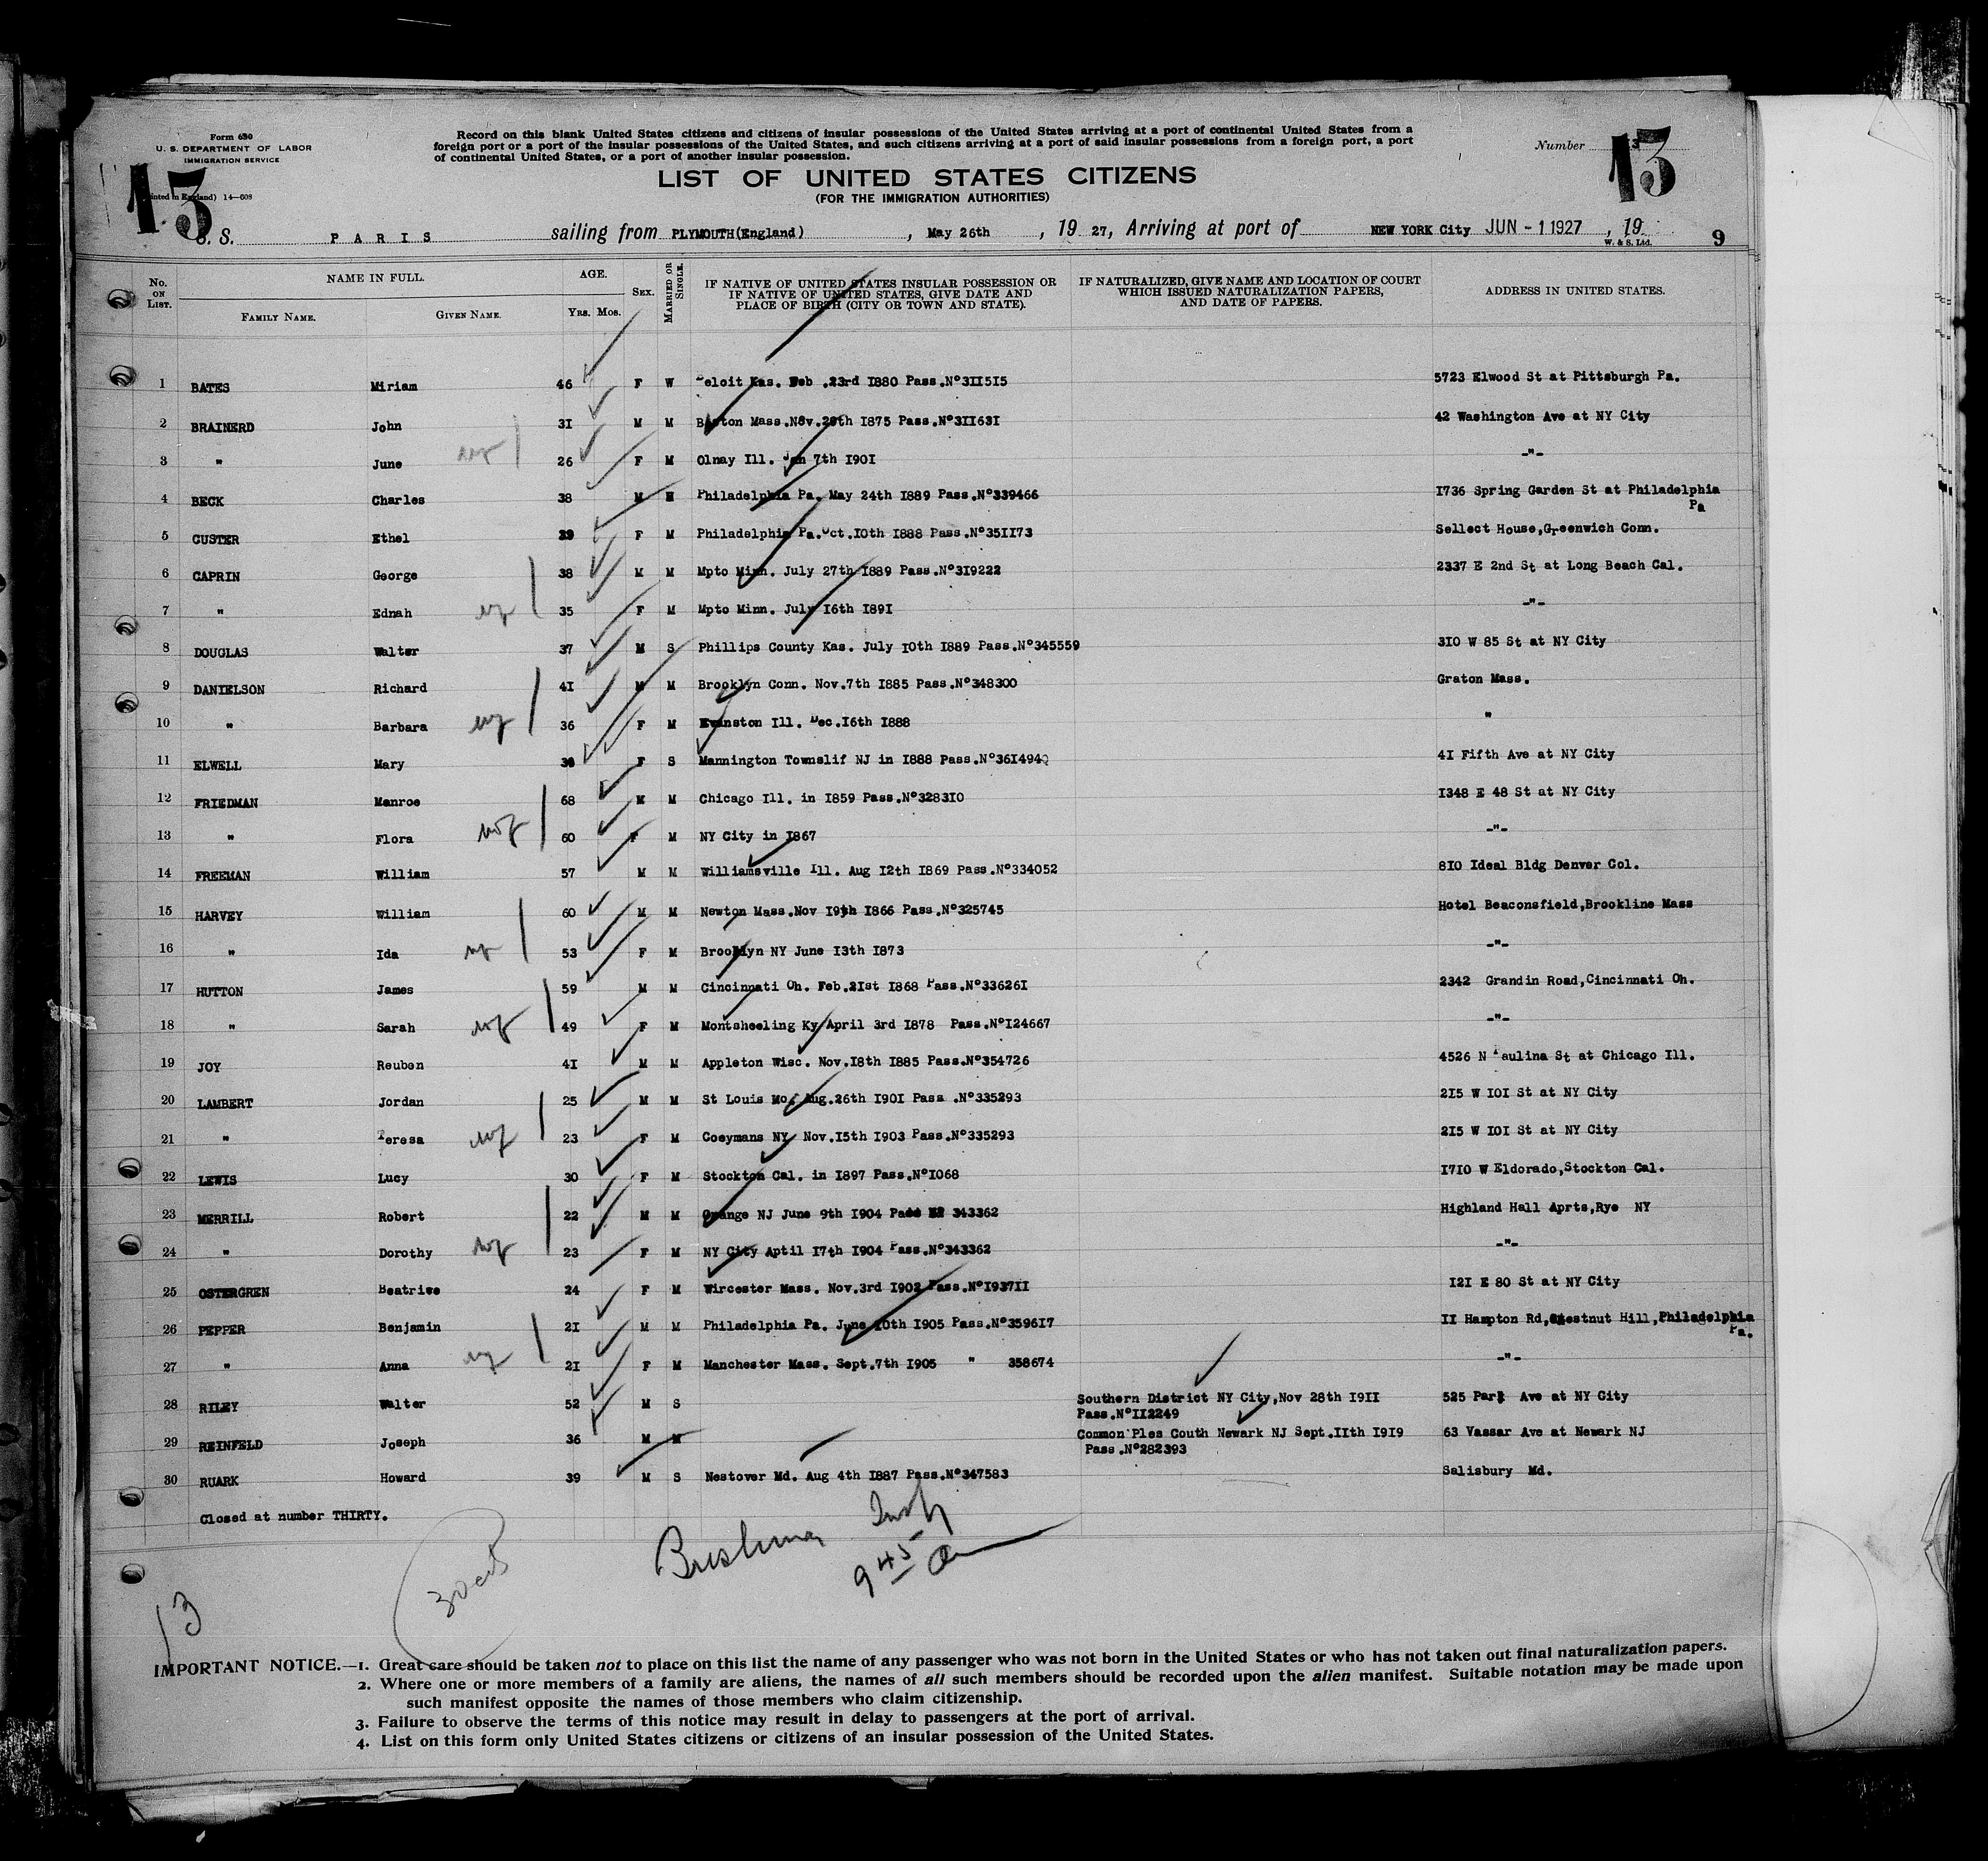 Form 630
U. S. DEPARTMENT OF LABOR
IMMIGRATION SERVICE
(Printed in England) 14—608
13
Record on this blank United States citizens and citizens of insular possessions of the United States arriving at a port of continental United States from a
foreign port or a port of the insular possessions of the United States, and such citizens arriving at a port of said insular possessions from a foreign port, a port
of continental United States, or a port of another insular possession.
Number 13
LIST OF UNITED STATES CITIZENS
(FOR THE IMMIGRATION AUTHORITIES)
S. S. PARIS sailing from PLYMOUTH(England), May 26th, 19 27, Arriving at port of NEW YORK City JUN - 1 1927, 19
W. & S. Ltd.
9
No. ON LIST. NAME IN FULL. FAMILY NAME. GIVEN NAME. AGE. YRS. MOS. SEX. MARRIED OR SINGLE. IF NATIVE OF UNITED STATES INSULAR POSSESSION OR IF NATIVE OF UNITED STATES, GIVE DATE AND PLACE OF BIRTH (CITY OR TOWN AND STATE). IF NATURALIZED, GIVE NAME AND LOCATION OF COURT WHICH ISSUED NATURALIZATION PAPERS, AND DATE OF PAPERS. ADDRESS IN UNITED STATES.
1 BATES Miriam 46 F W Beloit Kas. Feb .23rd I880 Pass.N°3II5I5 5723 Elwood St at Pittsburgh Pa.
2 BRAINERD John 3I M M Boston Mass.Nov.29th I875 Pass.N°3II63I 42 Washington Ave at NY City
3 " June 26 F M Olnay Ill. Jan 7th I90I -"-
4 BECK Charles 38 M M Philadelphia Pa. May 24th I889 Pass.N°339466 I736 Spring Garden St at Philadelphia Pa
5 CUSTER Ethel 39 F M Philadelphia Pa.Oct.I0th I888 Pass.N°35II73 Sellect House,Greenwich Conn.
6 CAPRIN George 38 M M Mpto Minn. July 27th I889 Pass.N°3I9222 2337 E 2nd St at Long Beach Cal.
7 " Ednah 35 F M Mpto Minn. July I6th I89I -"-
8 DOUGLAS Walter 37 M S Phillips County Kas. July I0th I889 Pass.N°345559 3I0 W 85 St at NY City
9 DANIELSON Richard 4I M M Brooklyn Conn. Nov.7th I885 Pass.N°348300 Graton Mass.
10 " Barbara 36 F M Evanston Ill. Dec.I6th I888 "
11 ELWELL Mary F S Mannington Townslif NJ in I888 Pass.N°36I494 4I Fifth Ave at NY City
12 FRIEDMAN Manroe 68 M M Chicago Ill. in I859 Pass.N°3283I0 I348 E 48 St at NY City
13 " Flora 60 F M NY City in I867 -"-
14 FREEMAN William 57 M M Williamsville Ill. Aug I2th I869 Pass.N°334052 8I0 Ideal Bldg Denver Col.
15 HARVEY William 60 M M Newton Mass.Nov I9th I866 Pass.N°325745 Hotel Beaconsfield,Brookline Mass
16 " Ida 53 F M Brooklyn NY June I3th I873 -"-
17 HUTTON James 59 M M Cincinnati Oh. Feb.2Ist I868 Pass.N°33626I 2342 Grandin Road,Cincinnati Oh.
18 " Sarah 49 F M Montsheeling Ky April 3rd I878 Pass.N°I24667 -"-
19 JOY Reuben 4I M M Appleton Wisc. Nov.I8th I885 Pass.N°354726 4526 N Paulina St at Chicago Ill.
20 LAMBERT Jordan 25 M M St Louis Mo. Aug.26th I90I Pass .N°335293 2I5 W I0I St at NY City
21 " Teresa 23 F M Coeymans NY Nov.I5th I903 Pass.N°335293 2I5 W I0I St at NY City
22 LEWIS Lucy 30 F M Stockton Cal. in I897 Pass.N°I068 I7I0 W Eldorado,Stockton Cal.
23 MERRILL Robert 22 M M Orange NJ June 9th I904 Pass N° 343362 Highland Hall Aprts,Rye NY
24 " Dorothy 23 F M NY City Aptil I7th I904 Pass.N°343362 -"-
25 OSTERGREN Beatrise 24 F M Wircester Mass. Nov.3rd I902 Pass.N°I937II I2I E 80 St at NY City
26 PEPPER Benjamin 2I M M Philadelphia Pa. June I0th I905 Pass.N°3596I7 II Hampton Rd,Chestnut Hill,Philadelphia Pa.
27 " Anna 2I F M Manchester Mass. Sept.7th I905 " 358674 -"-
28 RILEY Walter 52 M S Southern District NY City,Nov 28th I9II Pass.N°II2249 525 Park Ave at NY City
29 REINFELD Joseph 36 M M Common Ples Couth Newark NJ Sept.IIth I9I9 Pass.N°282393 63 Vassar Ave at Newark NJ
30 RUARK Howard 39 M S Nestover Md. Aug 4th I887 Pass.N°347583 Salisbury Md.
Closed at number THIRTY.
9 45
13
IMPORTANT NOTICE.—1. Great care should be taken not to place on this list the name of any passenger who was not born in the United States or who has not taken out final naturalization papers.
2. Where one or more members of a family are aliens, the names of all such members should be recorded upon the alien manifest. Suitable notation may be made upon
such manifest opposite the names of those members who claim citizenship.
3. Failure to observe the terms of this notice may result in delay to passengers at the port of arrival.
4. List on this form only United States citizens or citizens of an insular possession of the United States.